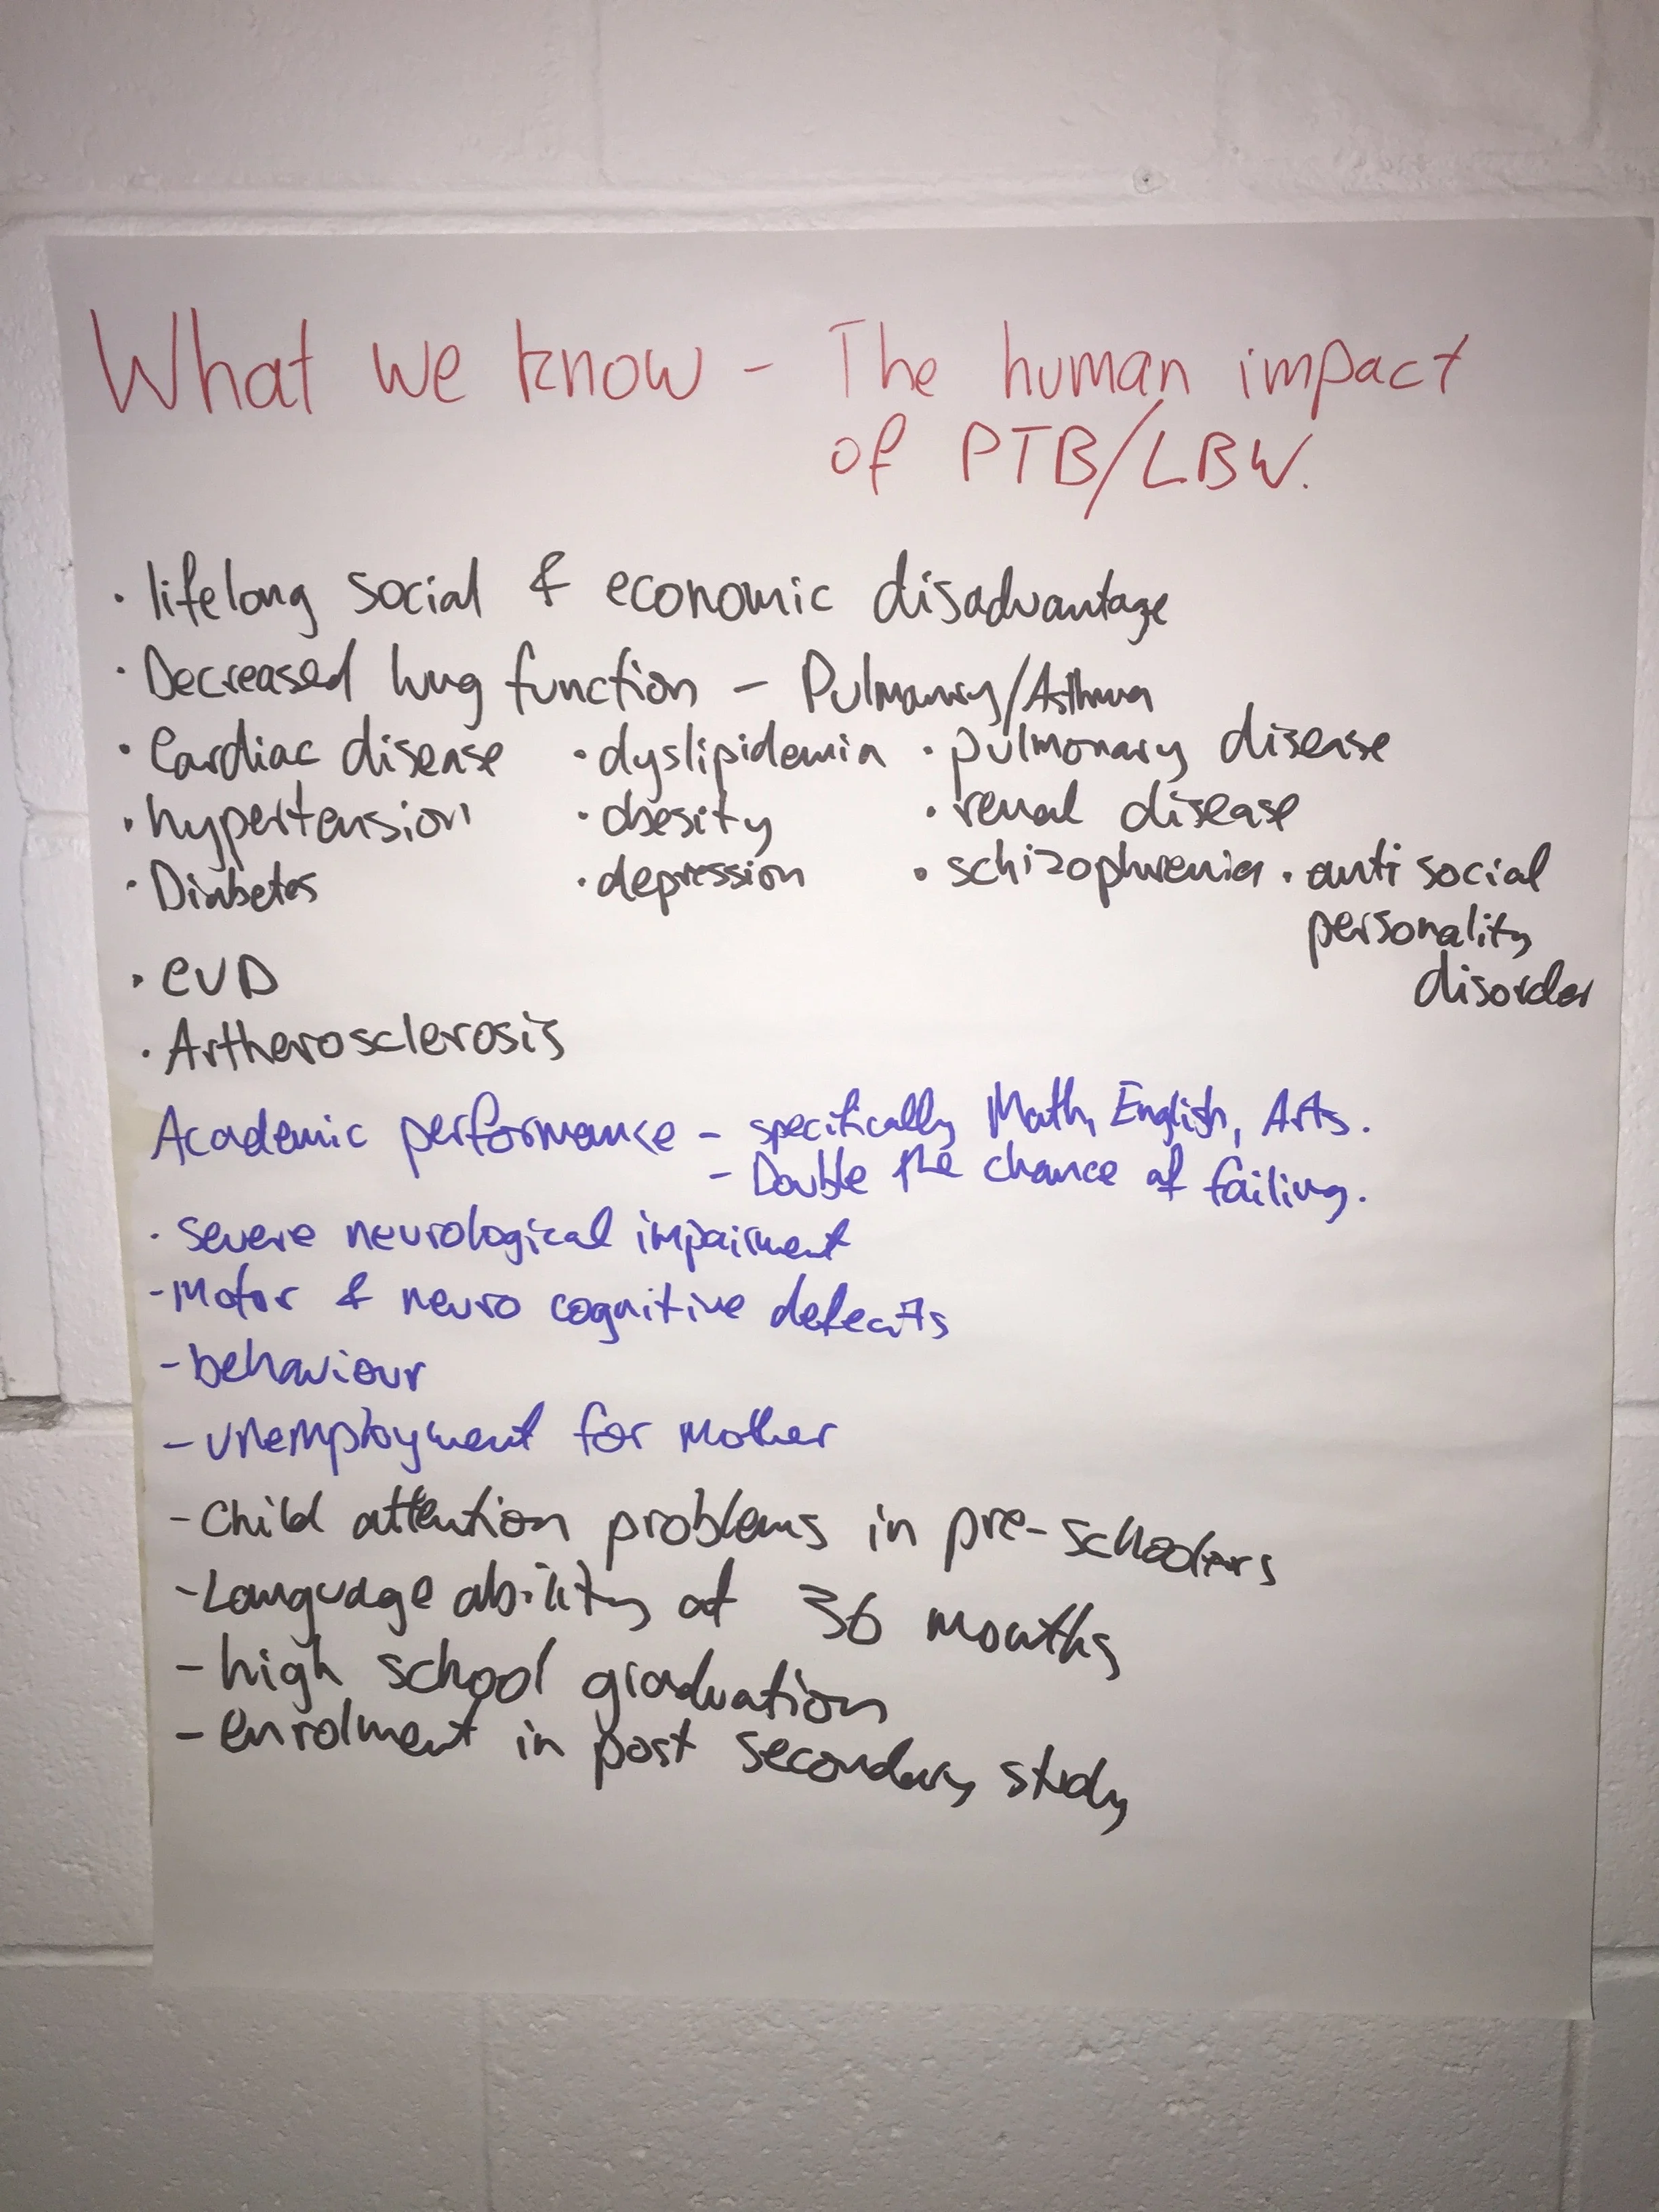 What we know - The human impact
of PTB/LBW.
· lifelong social & economic disadvantage
· Decreased lung function - Pulmanry/Asthma
· Cardiac disease · dyslipidemia · pulmonary disease
· hypertension · obesity · renal disease
· Diabetes · depression · schizophrenia · anti social
personality
disorder
· CVD
· Artherosclerosis
Academic performance - specifically Math, English, Arts.
- Double the chance of failing.
· severe neurological impairment
- Motor & neuro cognitive defecits
- behaviour
- unemployment for mother
- Child attention problems in pre-schoolers
- Language ability at 36 months
- high school graduation
- enrolment in post secondary study